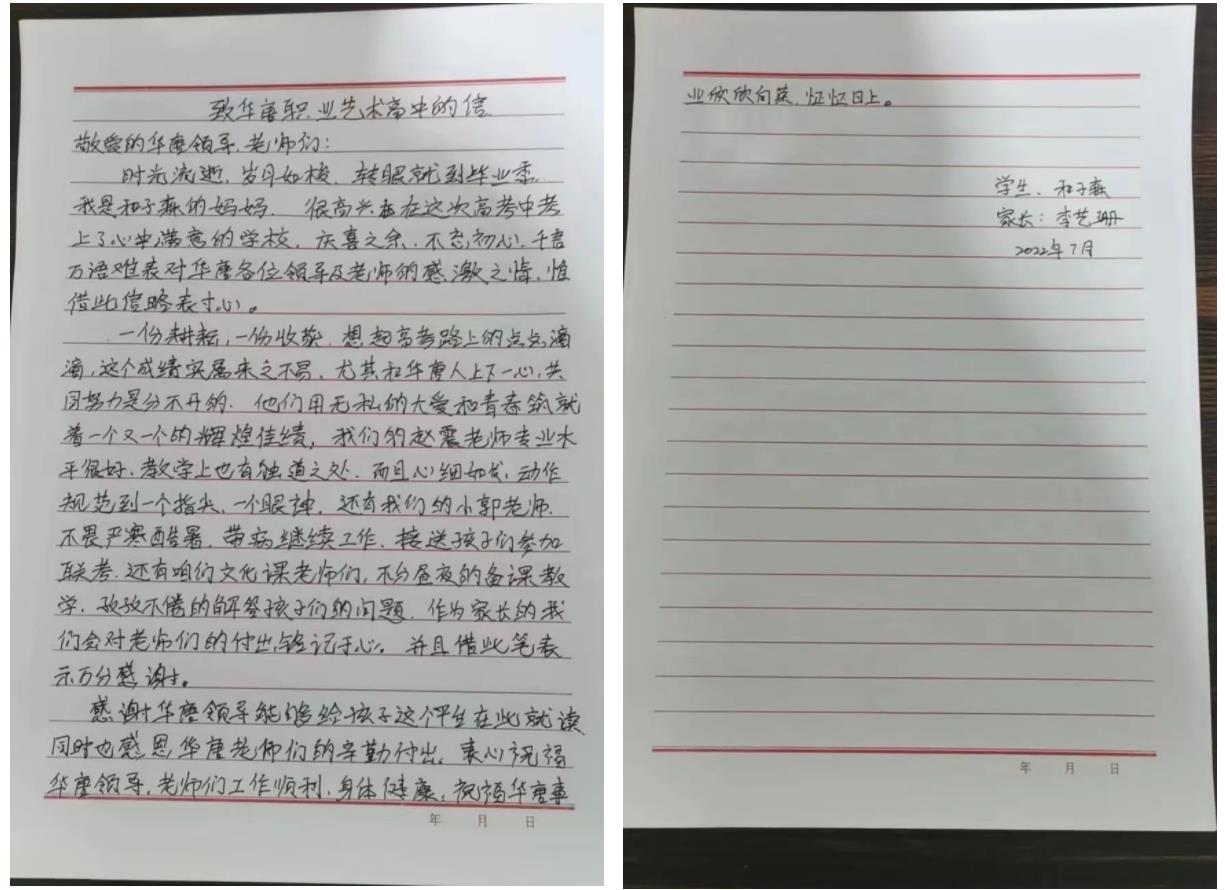 致华唐职业艺术高中的信
敬爱的华唐领导、老师们：
时光流逝，岁月如梭，转眼就到毕业季。
我是和子森的妈妈，很高兴在这次高考中考
上了心中满意的学校，庆喜之余，不忘初心，千言
万语难表对华唐各位领导及老师的感激之情，惟
借此信略表寸心。
一份耕耘，一份收获，想起高考路上的点点滴
滴，这个成绩实属来之不易，尤其和华唐人上下一心，共
同努力是分不开的，他们用无私的大爱和青春筑就
着一个又一个的辉煌佳绩，我们的赵震老师专业水
平很好，教学上也有独道之处，而且心细如发，动作
规范到一个指尖，一个眼神，还有我们的小郭老师，
不畏严寒酷暑，带病继续工作，接送孩子们参加
联考，还有咱们文化课老师们，不分昼夜的备课教
学，孜孜不倦的解答孩子们的问题，作为家长的我
们会对老师们的付出铭记于心。并且借此笔表
示万分感谢。
感谢华唐领导能够给孩子这个平台在此就读
同时也感恩华唐老师们的辛勤付出。衷心祝福
华唐领导，老师们工作顺利，身体健康，祝福华唐事
年 月 日
业欣欣向荣，怔怔日上。
学生、和子森
家长：李艺珊
2022年7月
年 月 日